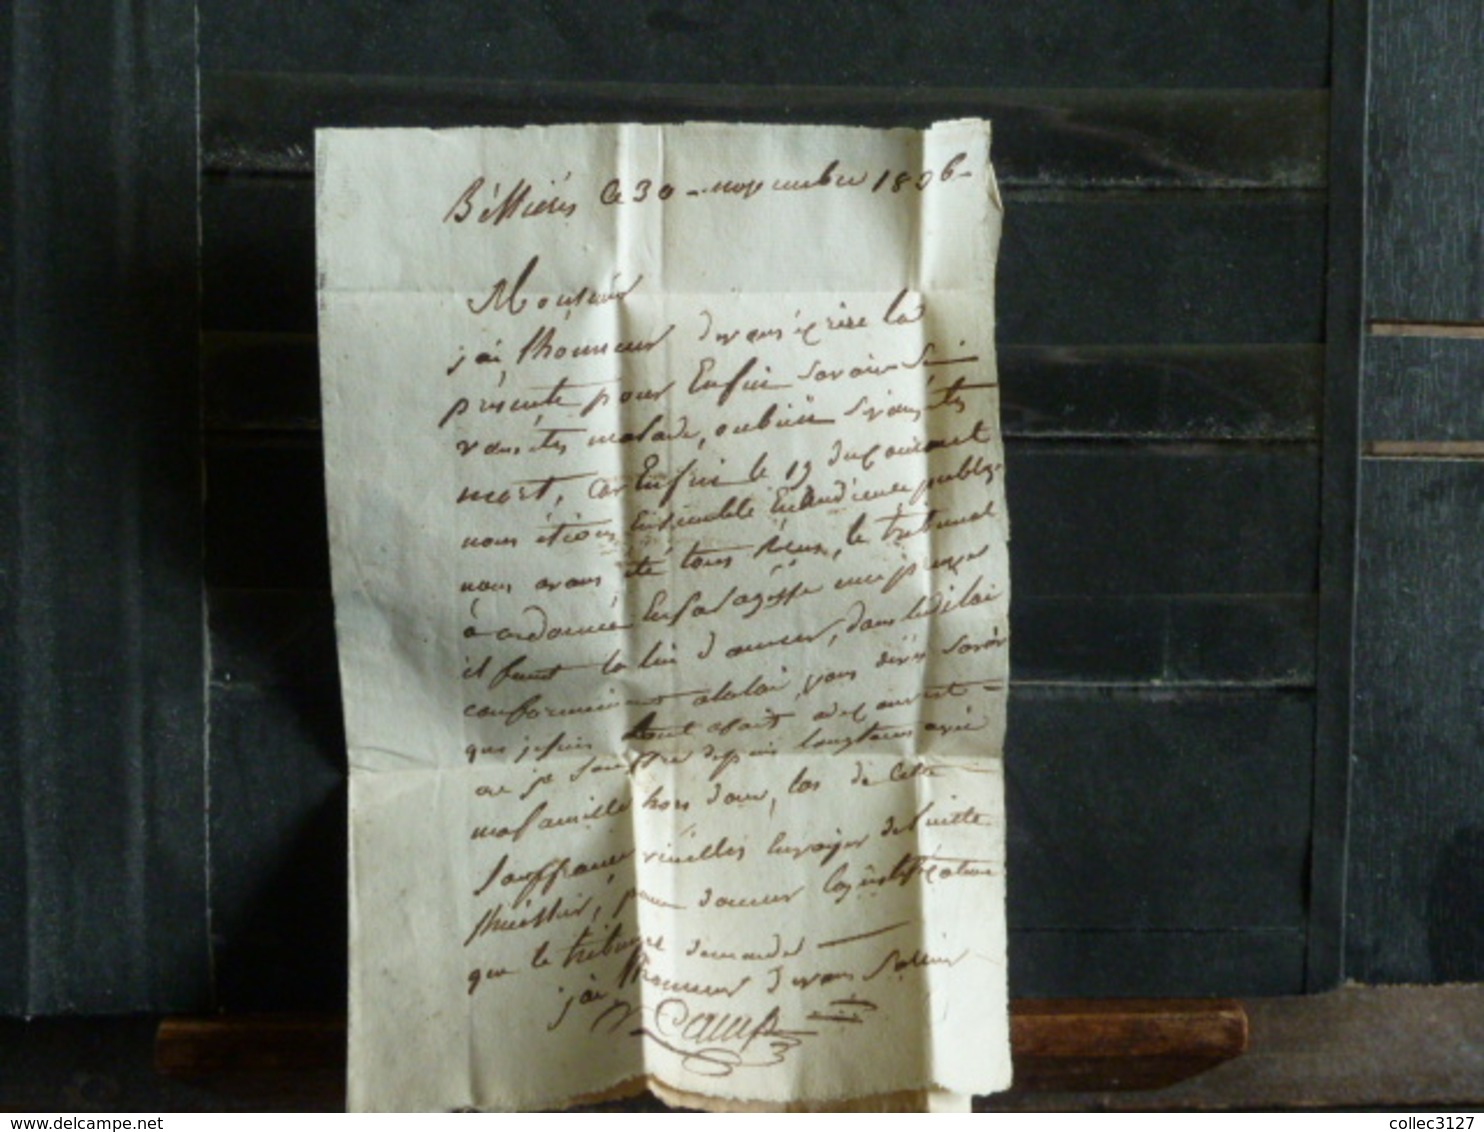 Béssiéres Ce 30 novembre 1806
Monsieur
jai lhonneur de vous écrire la
présente pour Enfin savoir Si
vous étes malade, oubien si vous étes
mort, car Enfin le 19 du Courant
nous étions Ensemble En Audience publiq.
nous avons été tous deux, le tribunal
à ordonné
il faut donner, dans le délai
conformément a la loi, vous devés savoir
que je suis tout a fait
ou je souffre depuis longtems avec
ma famille hors dour, las de Cette
Souffrance, véuillés Envoyer de suitte
lhuissier, pour donner la justification
que le tribunal demande
jai lhonneur de vous Saluer
Camp
collec3127